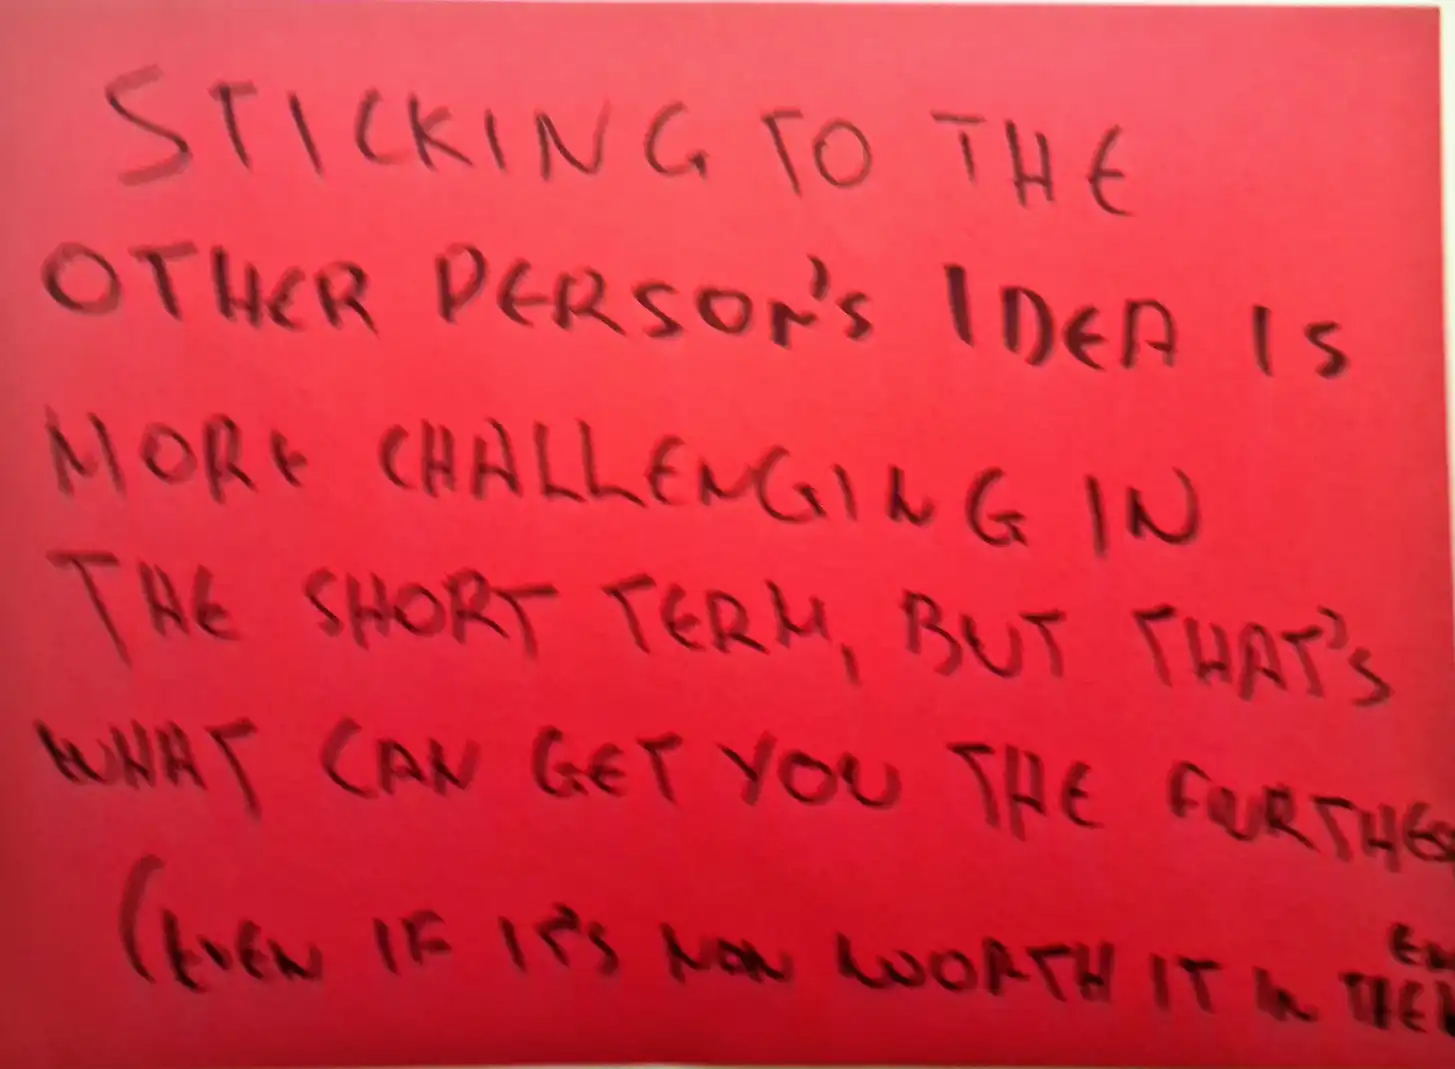 STICKING TO THE
OTHER PERSON'S IDEA IS
MORE CHALLENGING IN
THE SHORT TERM, BUT THAT'S
WHAT CAN GET YOU THE FURTHES
(EVEN IF IT'S NON WORTH IT IN THE